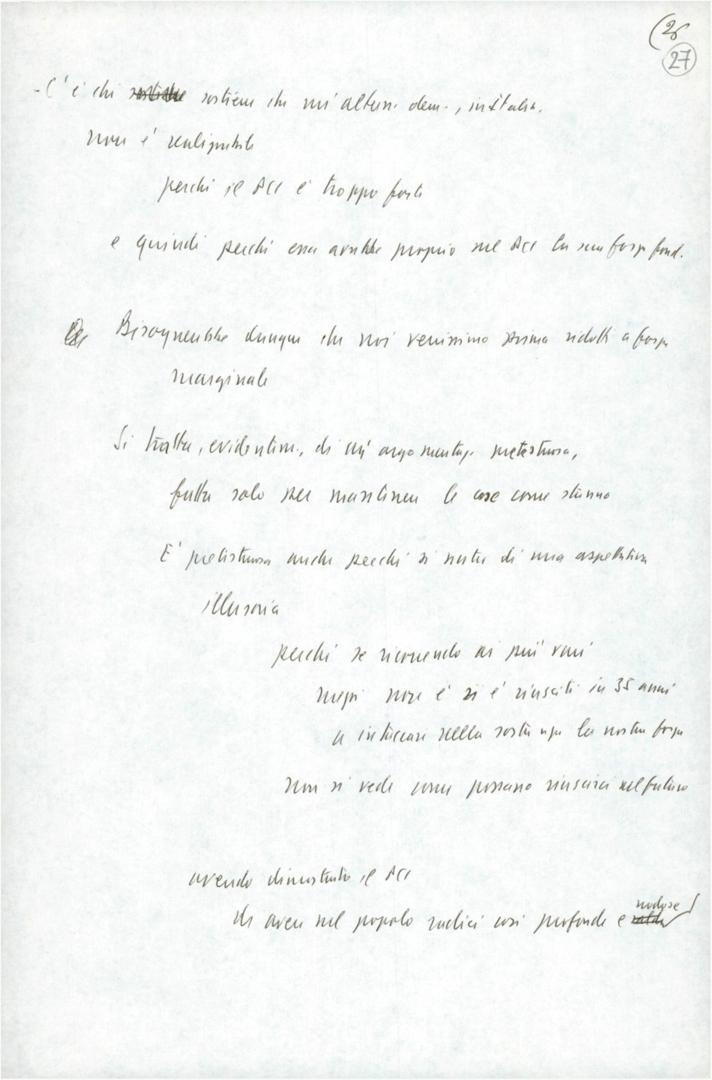 (26
27
- C'è chi sostiene che un'altern. dem., in Italia.
non è realizzabile
perché il PCI è troppo forte
e quindi perché essa avrebbe proprio nel PCI la sua forza fond.
Bisognerebbe dunque che noi venissimo prima ridotti a forza
marginale
Si tratta, evidentem., di un'argomentaz. pretestuosa,
fatta solo per mantenere le cose come stanno
E' pretestuosa anche perché si nutre di una aspettativa
illusoria
perché se ricorrendo ai più vari
mezzi non è si è riusciti in 35 anni
a intaccare nella sostanza la nostra forza
non si vede come possano riuscirci nel futuro
avendo dimostrato il PCI
di avere nel popolo radici così profonde e
nodose!